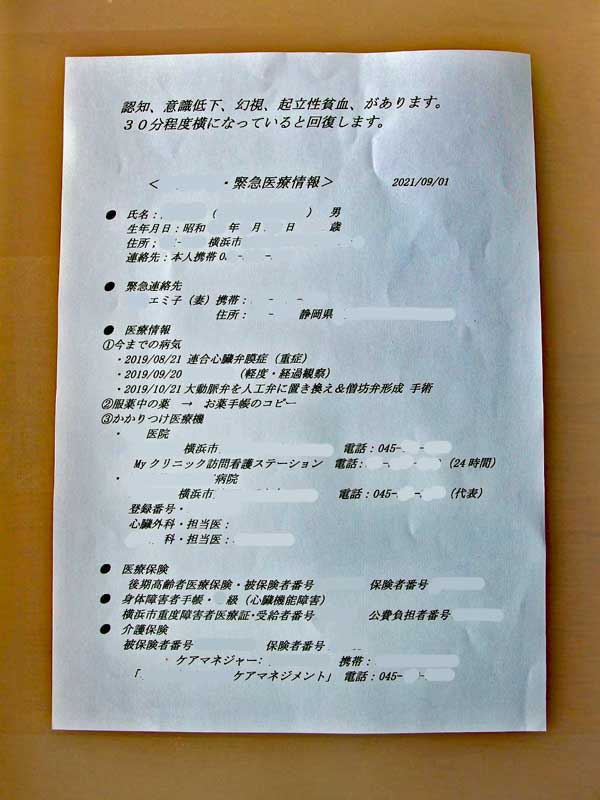 認知、意識低下、幻視、起立性貧血、があります。
３０分程度横になっていると回復します。
＜ ・緊急医療情報＞ 2021/09/01
● 氏名： （ ） 男
生年月日：昭和 年 月 日 歳
住所； - 横浜市
連絡先：本人携帯 0. - -
● 緊急連絡先
エミ子（妻）携帯： - -
住所： - 静岡県
● 医療情報
①今までの病気
・2019/08/21 連合心臓弁膜症（重症）
・2019/09/20 （軽度・経過観察）
・2019/10/21 大動脈弁を人工弁に置き換え＆僧坊弁形成 手術
②服薬中の薬 → お薬手帳のコピー
③かかりつけ医療機
・ 医院
横浜市 電話：045- -
My クリニック訪問看護ステーション 電話： - - （24 時間）
・ 病院
横浜市 電話：045- - （代表）
登録番号・
心臓外科・担当医：
科・担当医：
● 医療保険
後期高齢者医療保険・被保険者番号 保険者番号
● 身体障害者手帳・ 級（心臓機能障害）
横浜市重度障害者医療証・受給者番号 公費負担者番号
● 介護保険
被保険者番号 保険者番号
・ケアマネジャー： 携帯：
「 ケアマネジメント」 電話：045- -